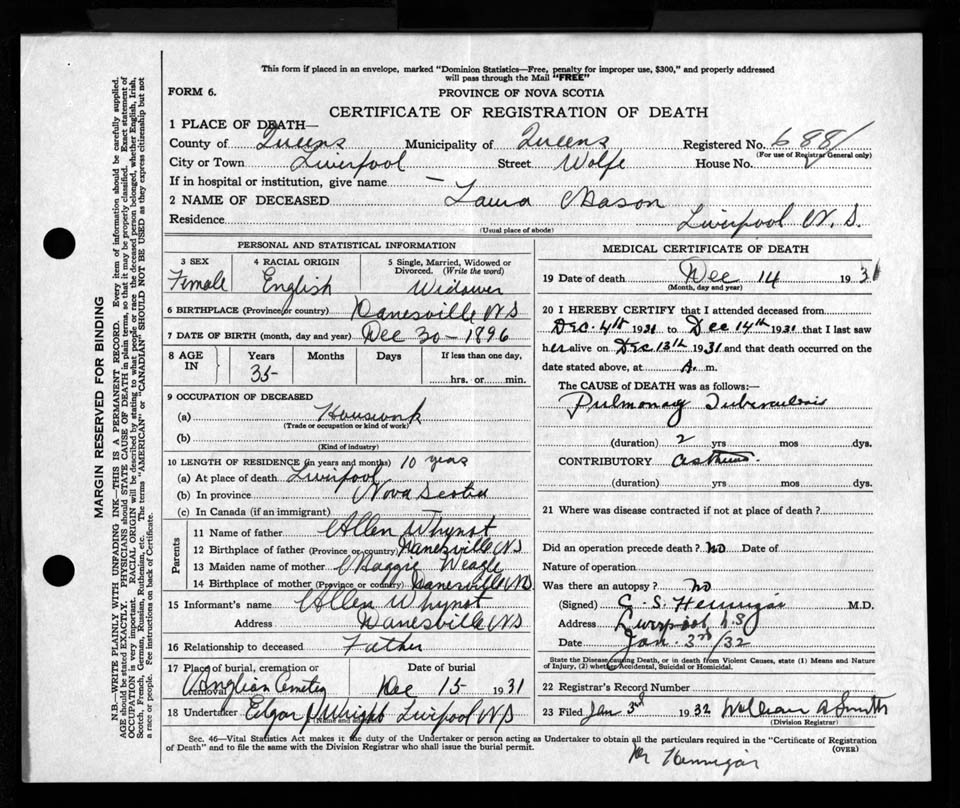 This form if placed in an envelope, marked "Dominion Statistics—Free, penalty for improper use, $300," and properly addressed
will pass through the Mail "FREE"
FORM 6.
PROVINCE OF NOVA SCOTIA
CERTIFICATE OF REGISTRATION OF DEATH
1 PLACE OF DEATH—
County of Queens Municipality of Queens Registered No. 6881
(For use of Registrar General only)
City or Town Liverpool Street Wolfe House No.
If in hospital or institution, give name —
2 NAME OF DECEASED Laura Mason
Residence Liverpool N.S.
(Usual place of abode)
PERSONAL AND STATISTICAL INFORMATION
3 SEX 4 RACIAL ORIGIN 5 Single, Married, Widowed or
Divorced. (Write the word)
Female English Widower
6 BIRTHPLACE (Province or country) Danesville NS
7 DATE OF BIRTH (month, day and year) Dec 30 - 1896
8 AGE IN Years Months Days If less than one day,
35 hrs. or min.
9 OCCUPATION OF DECEASED
(a) Housework
(Trade or occupation or kind of work)
(b)
(Kind of industry)
10 LENGTH OF RESIDENCE (in years and months) 10 years
(a) At place of death Liverpool
(b) In province Nova Scotia
(c) In Canada (if an immigrant)
Parents
11 Name of father Allen Whynot
12 Birthplace of father (Province or country) Danesville NS
13 Maiden name of mother Maggie Weagle
14 Birthplace of mother (Province or country) Danesville NS
15 Informant's name Allen Whynot
Address Danesville NS
16 Relationship to deceased Father
17 Place of burial, cremation or removal Date of burial
Anglian Cemetery Dec 15 1931
18 Undertaker Edgar J Wright Liverpool NS
MEDICAL CERTIFICATE OF DEATH
19 Date of death Dec 14 1931
(Month, day and year)
20 I HEREBY CERTIFY that I attended deceased from
Dec. 4th 1931 to Dec 14th 1931 that I last saw
her alive on Dec 13th 1931 and that death occurred on the
date stated above, at A. m.
The CAUSE OF DEATH was as follows:—
Pulmonary Tuberculosis
(duration) 2 yrs mos dys.
CONTRIBUTORY asthma.
(duration) yrs mos dys.
21 Where was disease contracted if not at place of death?
Did an operation precede death? no Date of
Nature of operation
Was there an autopsy? no
(Signed) S. Hennigar M.D.
Address Liverpool N.S.
Date Jan. 3rd/32
State the Disease causing Death, or in death from Violent Causes, state (1) Means and Nature
of Injury, (2) whether Accidental, Suicidal or Homicidal.
22 Registrar's Record Number
23 Filed Jan 3rd 1932 William A Smith
(Division Registrar)
Sec. 46—Vital Statistics Act makes it the duty of the Undertaker or person acting as Undertaker to obtain all the particulars required in the "Certificate of Registration
of Death" and to file the same with the Division Registrar who shall issue the burial permit. (OVER)
Hennigar
MARGIN RESERVED FOR BINDING
N.B.—WRITE PLAINLY WITH UNFADING INK—THIS IS A PERMANENT RECORD. Every item of information should be carefully supplied.
AGE should be stated EXACTLY. PHYSICIANS should STATE CAUSE OF DEATH in plain terms, so that it may be properly classified. Exact statement of
OCCUPATION is very important. RACIAL ORIGIN will be described by stating to what people or race the deceased person belonged, whether English, Irish,
Scotch, French, German, Russian, Ruthenian, etc. The terms "AMERICAN" or "CANADIAN" SHOULD NOT BE USED as they express citizenship but not
a race or people. See instructions on back of Certificate.